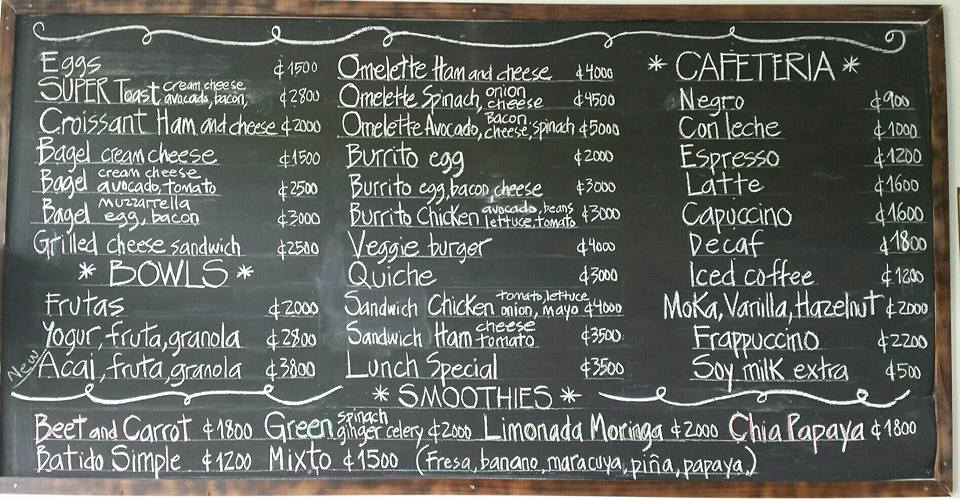 Eggs ¢1500
SUPER Toast cream cheese avocado, bacon, ¢2800
Croissant Ham and cheese ¢2000
Bagel cream cheese ¢1500
Bagel cream cheese avocado, tomato ¢2500
Bagel muzzarella egg, bacon ¢3000
Grilled cheese sandwich ¢2500
* BOWLS *
Frutas ¢2000
Yogur, fruta, granola ¢2800
New Acai, fruta, granola ¢3800
Omelette Ham and cheese ¢4000
Omelette Spinach, onion cheese ¢4500
Omelette Avocado, Bacon cheese, spinach ¢5000
Burrito egg ¢2000
Burrito egg, bacon, cheese ¢3000
Burrito Chicken avocado, beans lettuce, tomato ¢3000
Veggie burger ¢4000
Quiche ¢3000
Sandwich Chicken tomato, lettuce onion, mayo ¢4000
Sandwich Ham cheese tomato ¢3500
Lunch Special ¢3500
* CAFETERIA *
Negro ¢900
Con leche ¢1000
Espresso ¢1200
Latte ¢1600
Capuccino ¢1600
Decaf ¢1800
Iced coffee ¢1200
Moka, Vanilla, Hazelnut ¢2000
Frappuccino ¢2200
Soy milk extra ¢500
* SMOOTHIES *
Beet and Carrot ¢1800 Green spinach ginger celery ¢2000 Limonada Moringa ¢2000 Chia Papaya ¢1800
Batido Simple ¢1200 Mixto ¢1500 (Fresa, banano, maracuya, piña, papaya,)